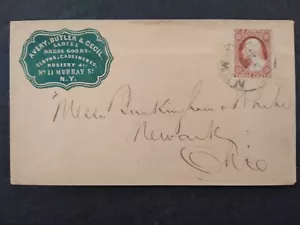 AVERY, BUTLER & CECIL,
LADIES
DRESS GOODS,
CLOTHS, CASSIMERES,
HOSIERY &c.
No 11 MURRAY St
N.Y.
THREE CENTS
Messrs Buckingham &
Newark
Ohio